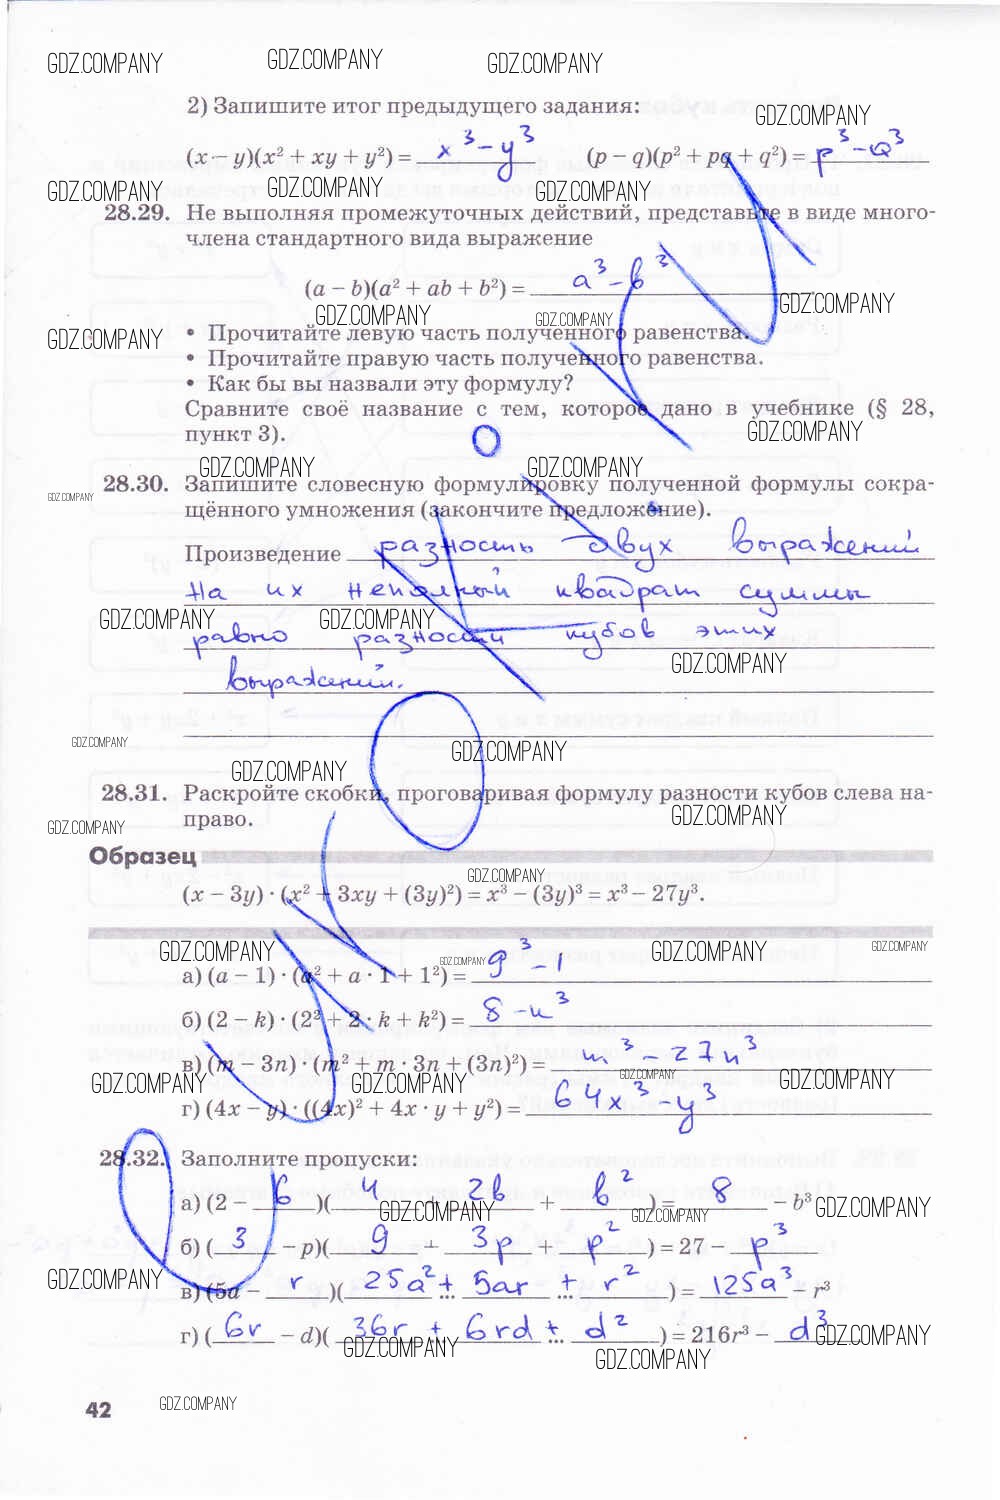 GDZ.COMPANY GDZ.COMPANY GDZ.COMPANY
2) Запишите итог предыдущего задания:
GDZ.COMPANY
(x − y)(x² + xy + y²) = x³ − y³ (p − q)(p² + pq + q²) = p³ − q³
GDZ.COMPANY GDZ.COMPANY GDZ.COMPANY
28.29. Не выполняя промежуточных действий, представьте в виде много-
члена стандартного вида выражение
(a − b)(a² + ab + b²) = a³ − b³
GDZ.COMPANY GDZ.COMPANY GDZ.COMPANY
GDZ.COMPANY
• Прочитайте левую часть полученного равенства.
• Прочитайте правую часть полученного равенства.
• Как бы вы назвали эту формулу?
Сравните своё название с тем, которое дано в учебнике (§ 28,
пункт 3).
GDZ.COMPANY
GDZ.COMPANY GDZ.COMPANY
28.30. Запишите словесную формулировку полученной формулы сокра-
GDZ.COMPANY
щённого умножения (закончите предложение).
Произведение разность двух выражений
на их неполный квадрат суммы
GDZ.COMPANY GDZ.COMPANY
равно разности кубов этих
GDZ.COMPANY
выражений.
GDZ.COMPANY GDZ.COMPANY
GDZ.COMPANY
28.31. Раскройте скобки, проговаривая формулу разности кубов слева на-
право.
GDZ.COMPANY GDZ.COMPANY
Образец
GDZ.COMPANY
(x − 3y) · (x² + 3xy + (3y)²) = x³ − (3y)³ = x³ − 27y³.
GDZ.COMPANY GDZ.COMPANY GDZ.COMPANY GDZ.COMPANY
а) (a − 1) · (a² + a · 1 + 1²) = a³ − 1
б) (2 − k) · (2² + 2 · k + k²) = 8 − k³
в) (m − 3n) · (m² + m · 3n + (3n)²) = m³ − 27n³
GDZ.COMPANY GDZ.COMPANY GDZ.COMPANY GDZ.COMPANY
г) (4x − y) · ((4x)² + 4x · y + y²) = 64x³ − y³
28.32. Заполните пропуски:
а) (2 − b)(4 + 2b + b²) = 8 − b³
GDZ.COMPANY GDZ.COMPANY GDZ.COMPANY
б) (3 − p)(9 + 3p + p²) = 27 − p³
GDZ.COMPANY
в) (5a − r)(25a² + ... 5ar + ... r²) = 125a³ − r³
г) (6r − d)(36r + ... 6rd + ... d²) = 216r³ − d³
GDZ.COMPANY GDZ.COMPANY GDZ.COMPANY
42 GDZ.COMPANY